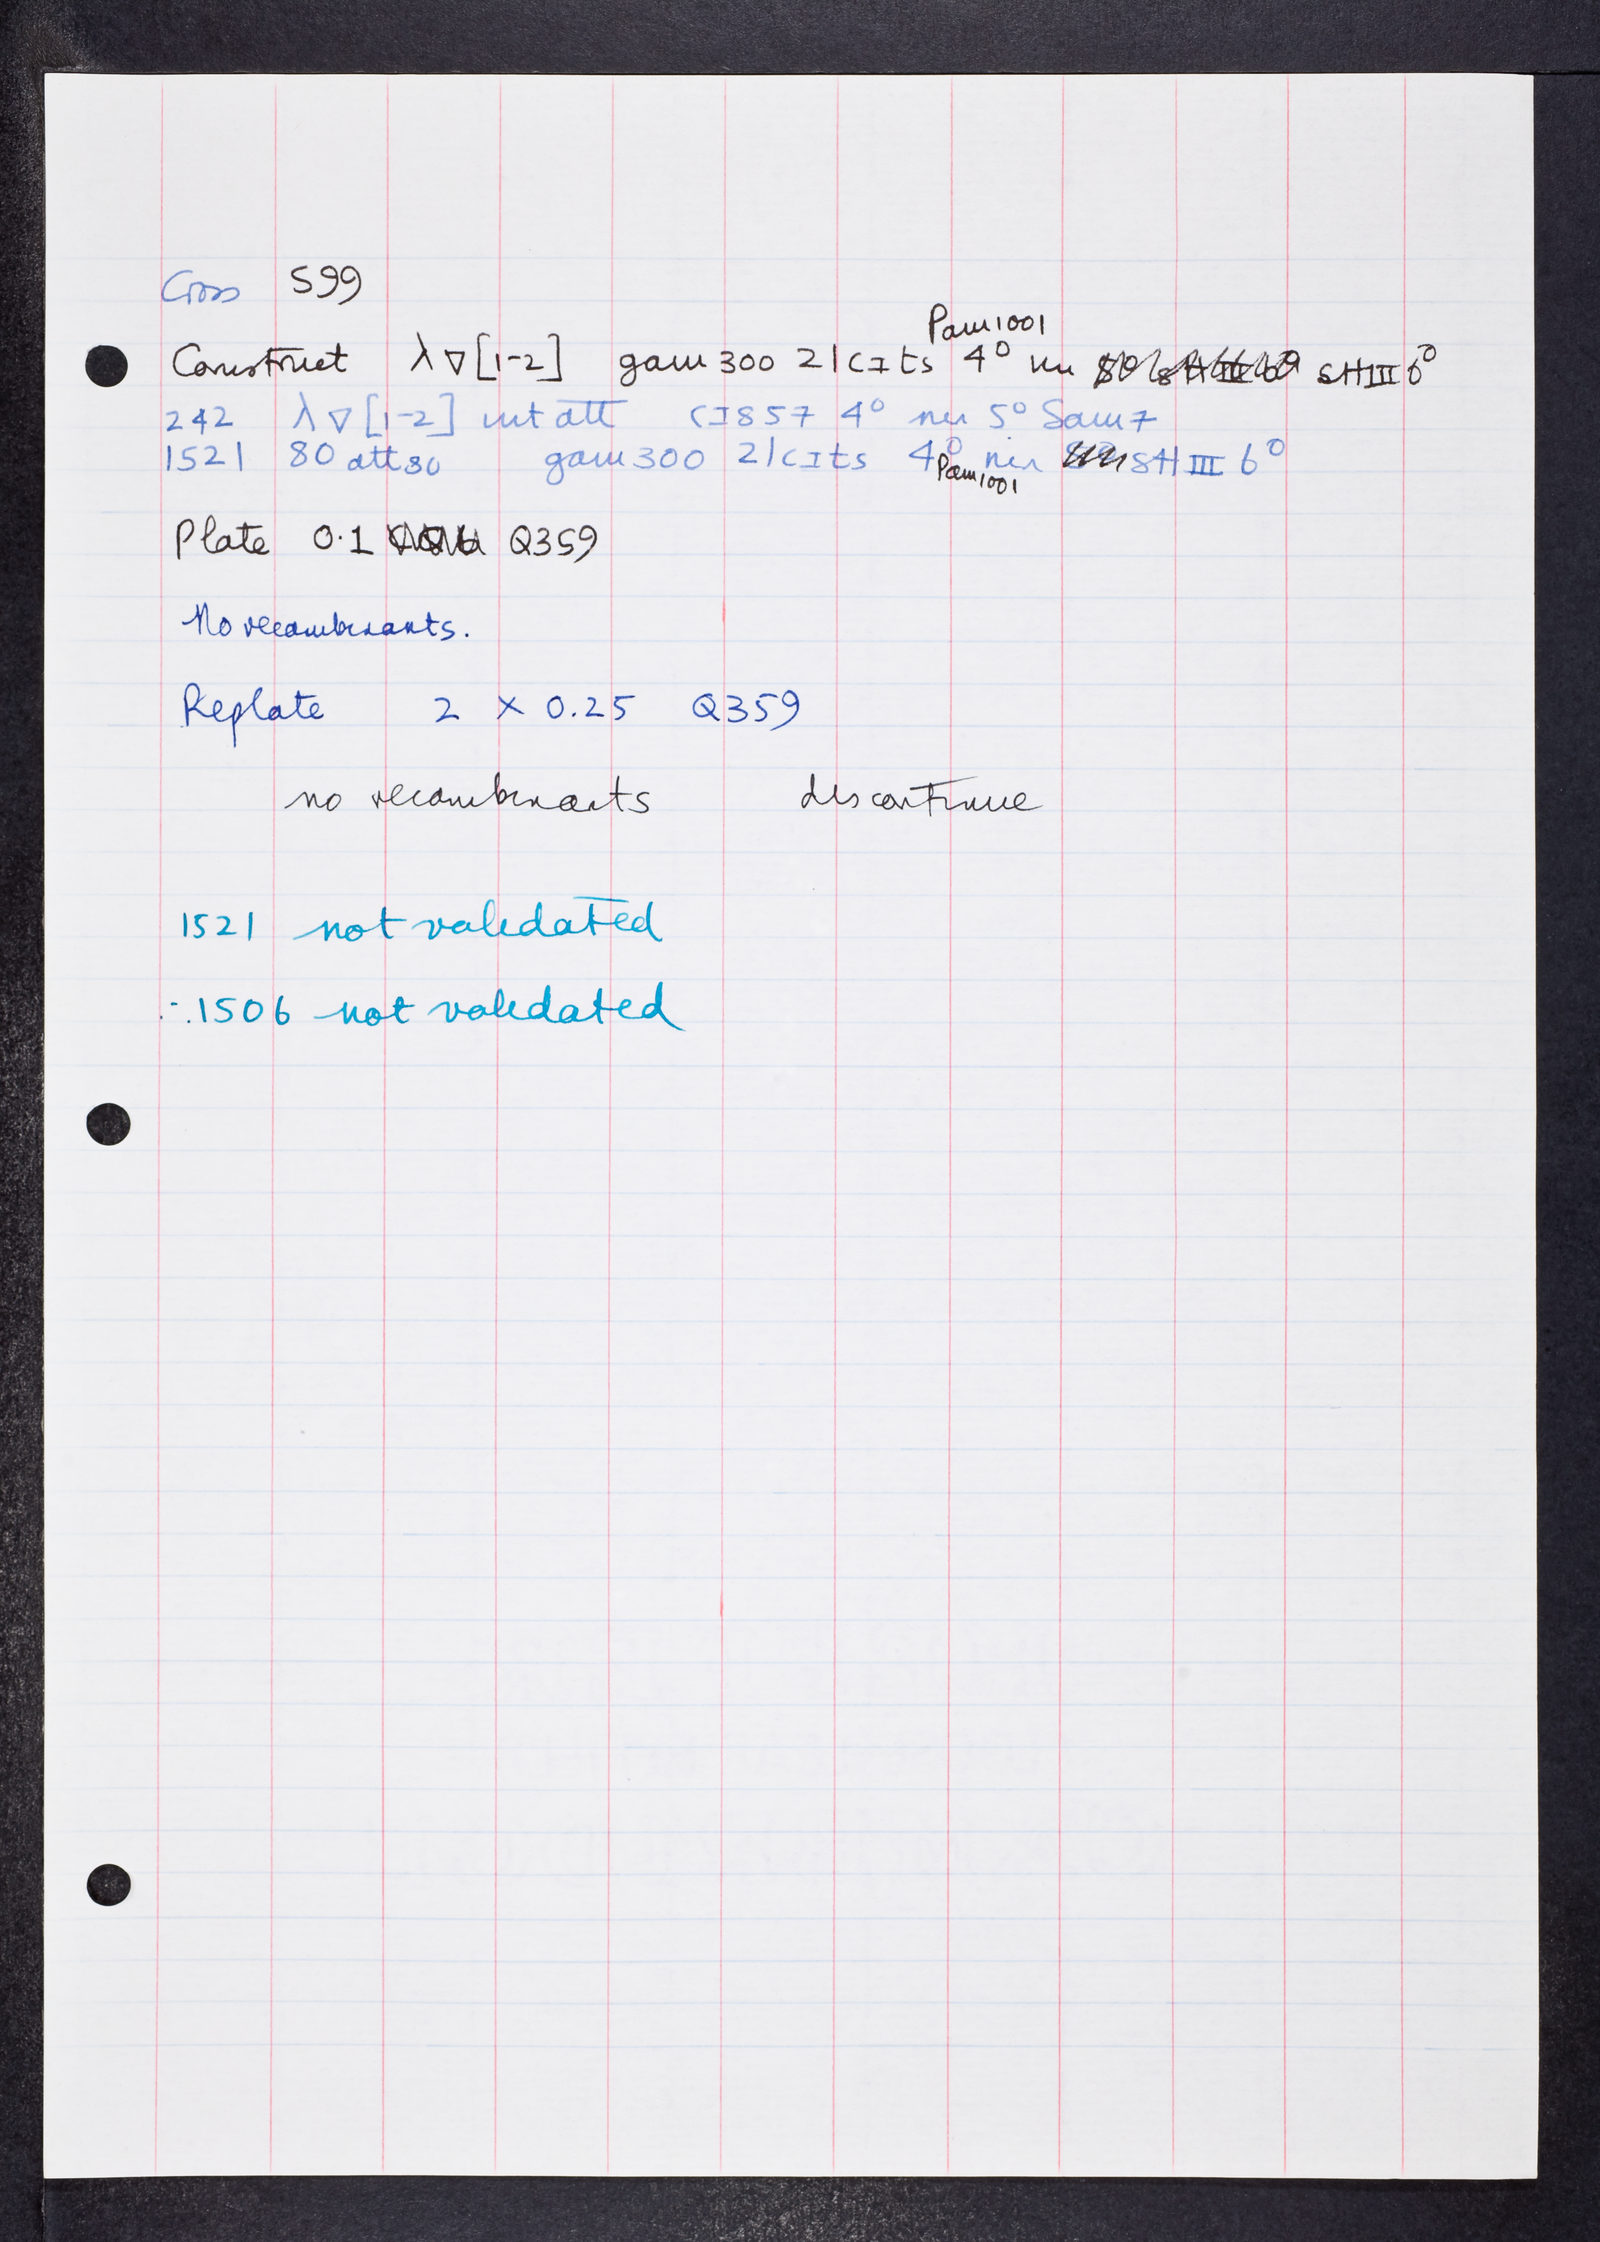 Cross 599
Pam1001
Construct λ∇[1-2] gam300 21cIts 4° nin sHIII6°
242 λ∇[1-2] int att cI857 4° nin 5° Sam7
1521 80att80 gam300 21cIts 4° nin sHIII6°
Pam1001
Plate 0.1 Q359
No recombinants.
Replate 2 × 0.25 Q359
no recombinants discontinue
1521 not validated
∴1506 not validated